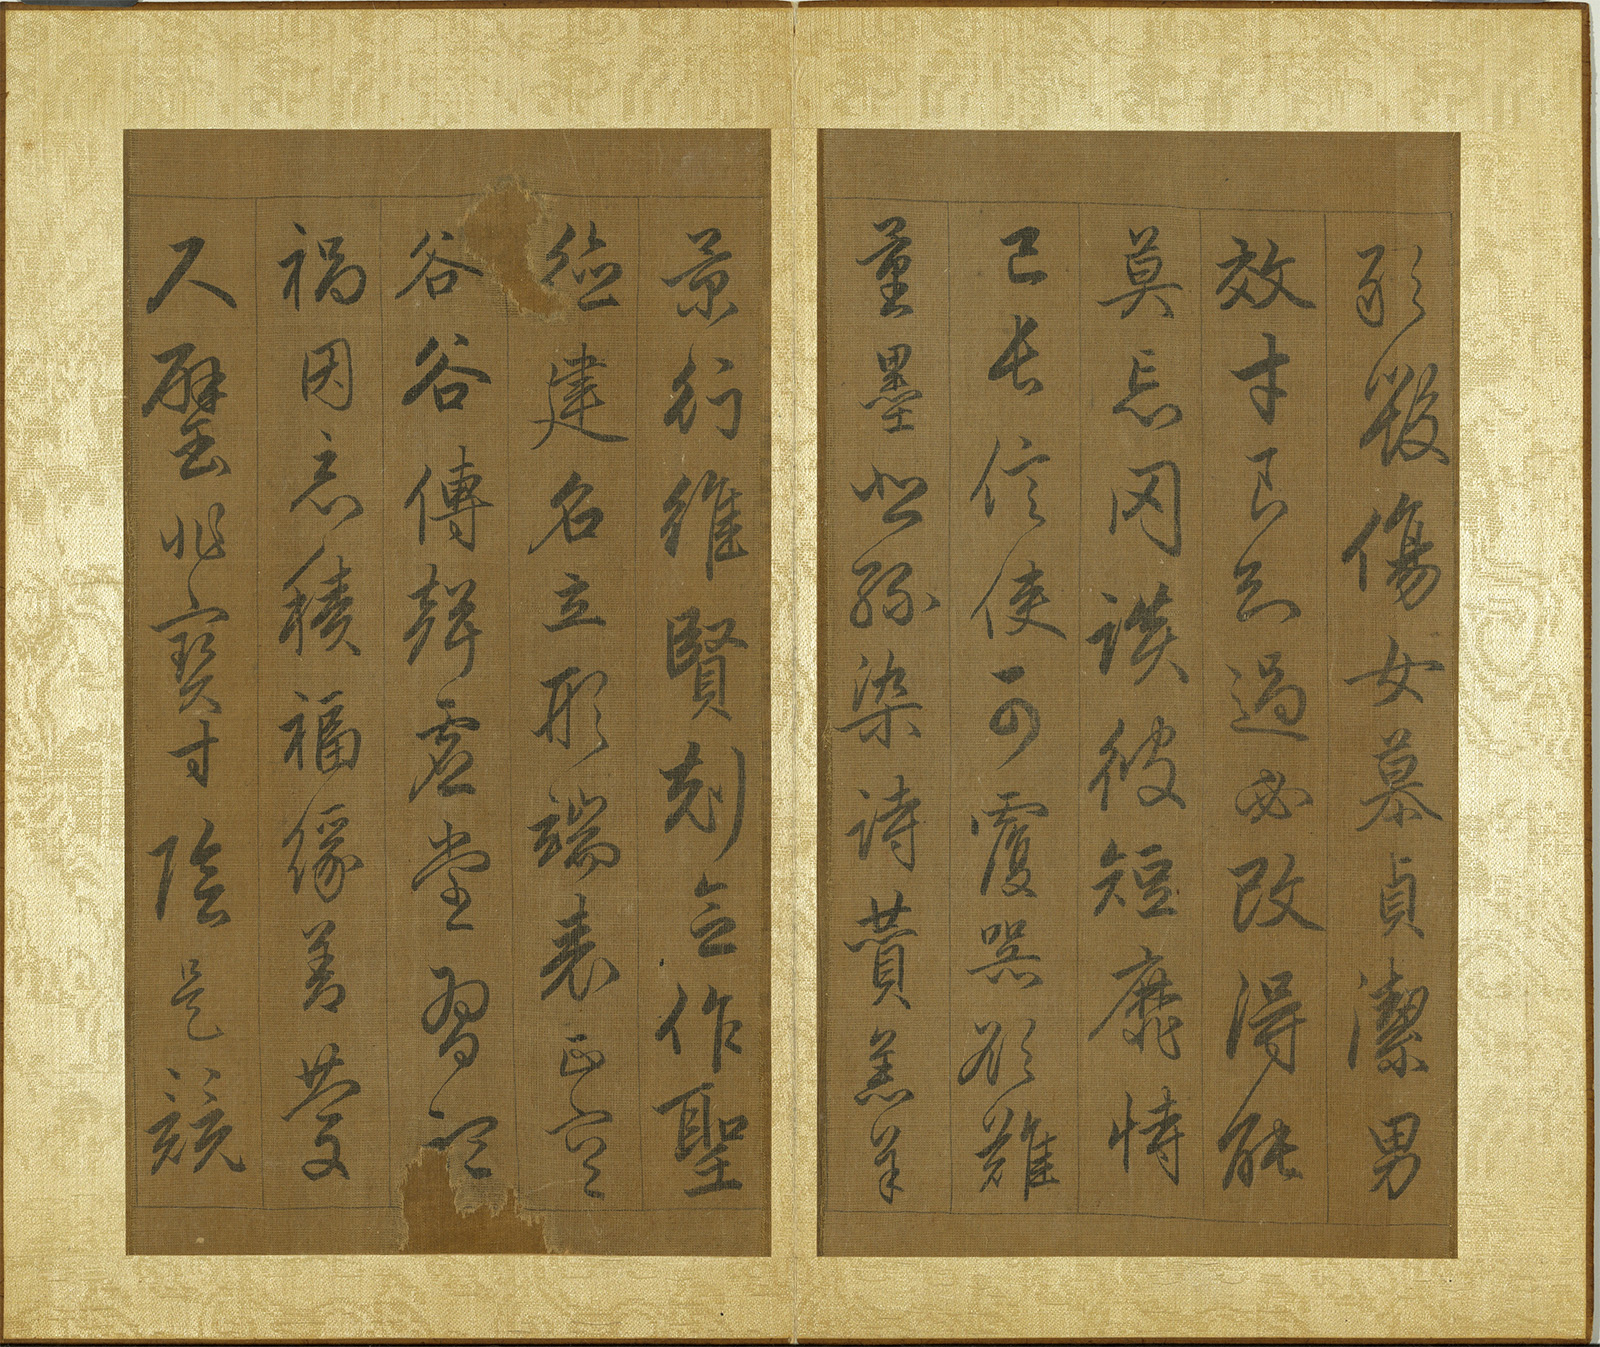 敢毀傷女慕貞潔男
效才良知過必改得能
莫忘罔談彼短靡恃
己長信使可覆器欲難
量墨悲絲染詩贊羔羊
景行維賢剋念作聖
德建名立形端表正空
谷谷傳聲虛堂習聽
禍因惡積福緣善慶
尺璧非寶寸陰是競